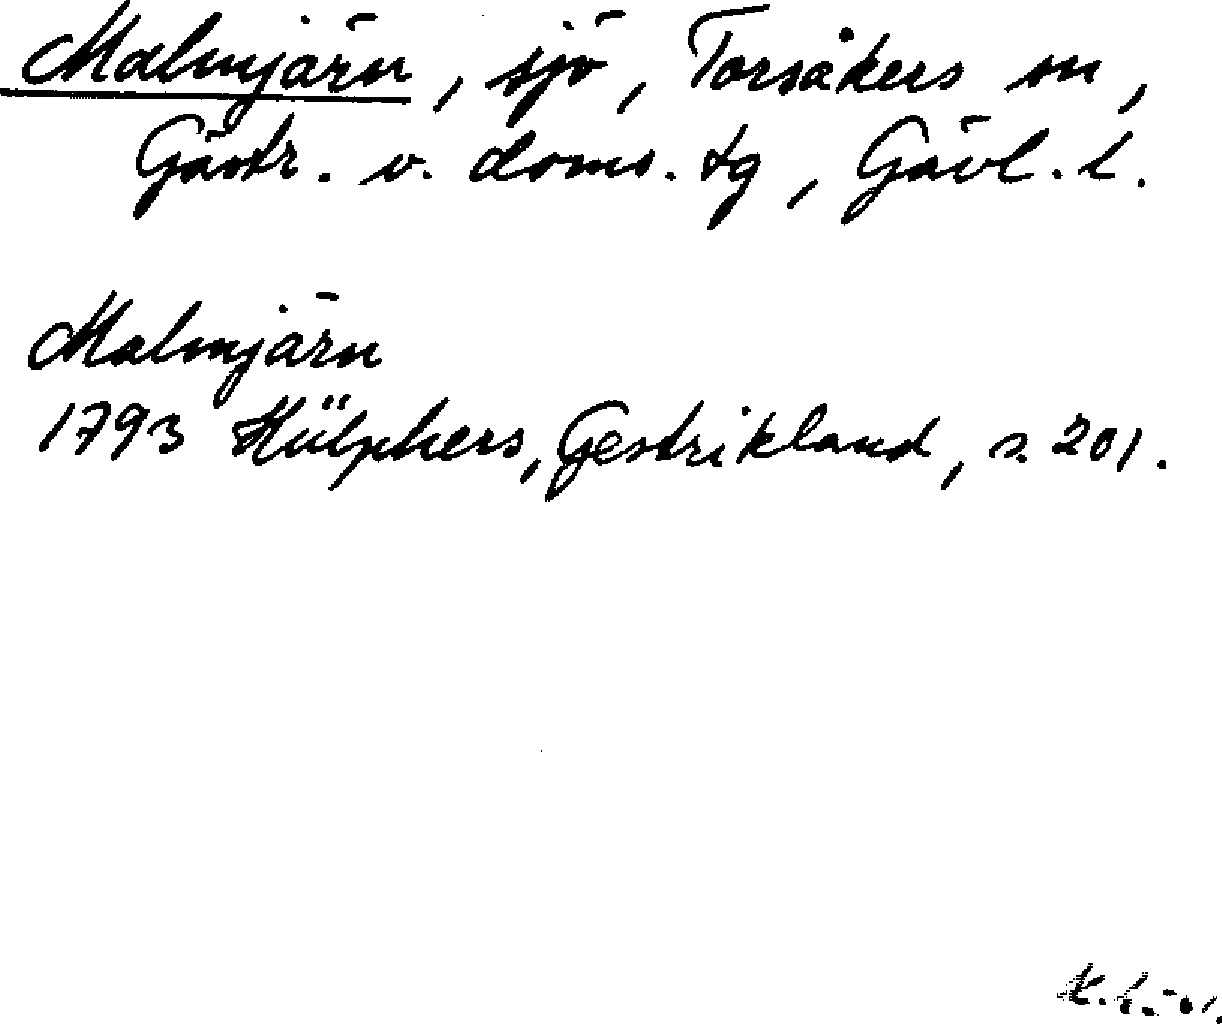 Malmjärn, sjö, Torsåkers sn,
Gästr. v. doms. tg, Gävl. l.
Malmjärn
1793 Hülphers, Gestrikland, s. 201.